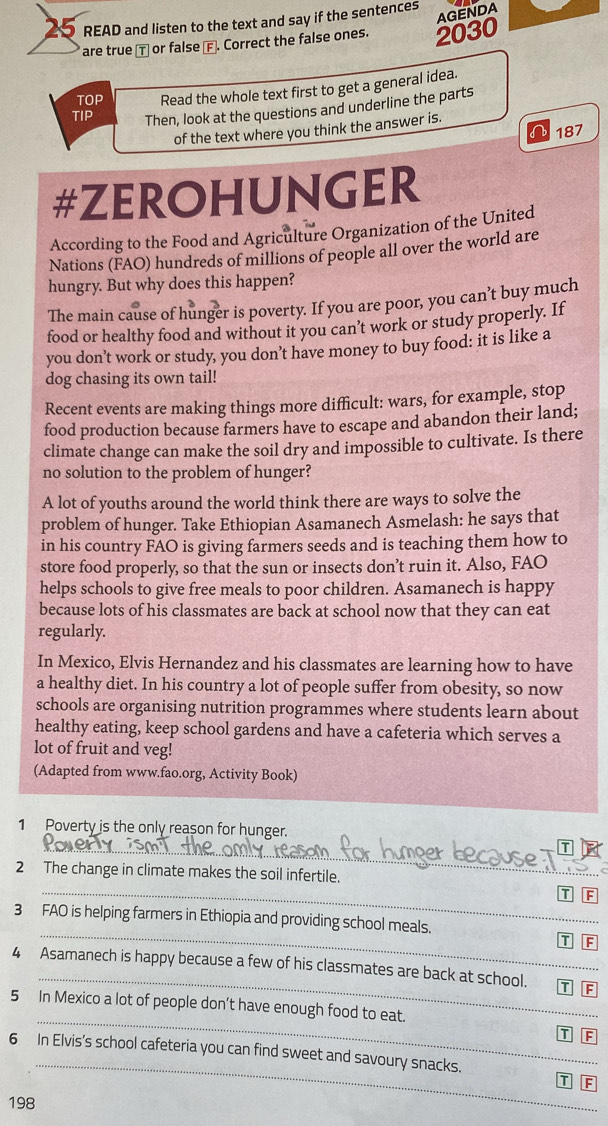 25 READ and listen to the text and say if the sentences
are true T or false F. Correct the false ones.
AGENDA
2030
TOP
TIP
Read the whole text first to get a general idea.
Then, look at the questions and underline the parts
of the text where you think the answer is.
187
#ZEROHUNGER
According to the Food and Agriculture Organization of the United
Nations (FAO) hundreds of millions of people all over the world are
hungry. But why does this happen?
The main cause of hunger is poverty. If you are poor, you can't buy much
food or healthy food and without it you can't work or study properly. If
you don't work or study, you don't have money to buy food: it is like a
dog chasing its own tail!
Recent events are making things more difficult: wars, for example, stop
food production because farmers have to escape and abandon their land;
climate change can make the soil dry and impossible to cultivate. Is there
no solution to the problem of hunger?
A lot of youths around the world think there are ways to solve the
problem of hunger. Take Ethiopian Asamanech Asmelash: he says that
in his country FAO is giving farmers seeds and is teaching them how to
store food properly, so that the sun or insects don't ruin it. Also, FAO
helps schools to give free meals to poor children. Asamanech is happy
because lots of his classmates are back at school now that they can eat
regularly.
In Mexico, Elvis Hernandez and his classmates are learning how to have
a healthy diet. In his country a lot of people suffer from obesity, so now
schools are organising nutrition programmes where students learn about
healthy eating, keep school gardens and have a cafeteria which serves a
lot of fruit and veg!
(Adapted from www.fao.org, Activity Book)
1 Poverty is the only reason for hunger.
T F
Poverty isn't the only reason for hunger because
2 The change in climate makes the soil infertile.
T F
3 FAO is helping farmers in Ethiopia and providing school meals.
T F
4 Asamanech is happy because a few of his classmates are back at school.
T F
5 In Mexico a lot of people don't have enough food to eat.
T F
6 In Elvis's school cafeteria you can find sweet and savoury snacks.
T F
198